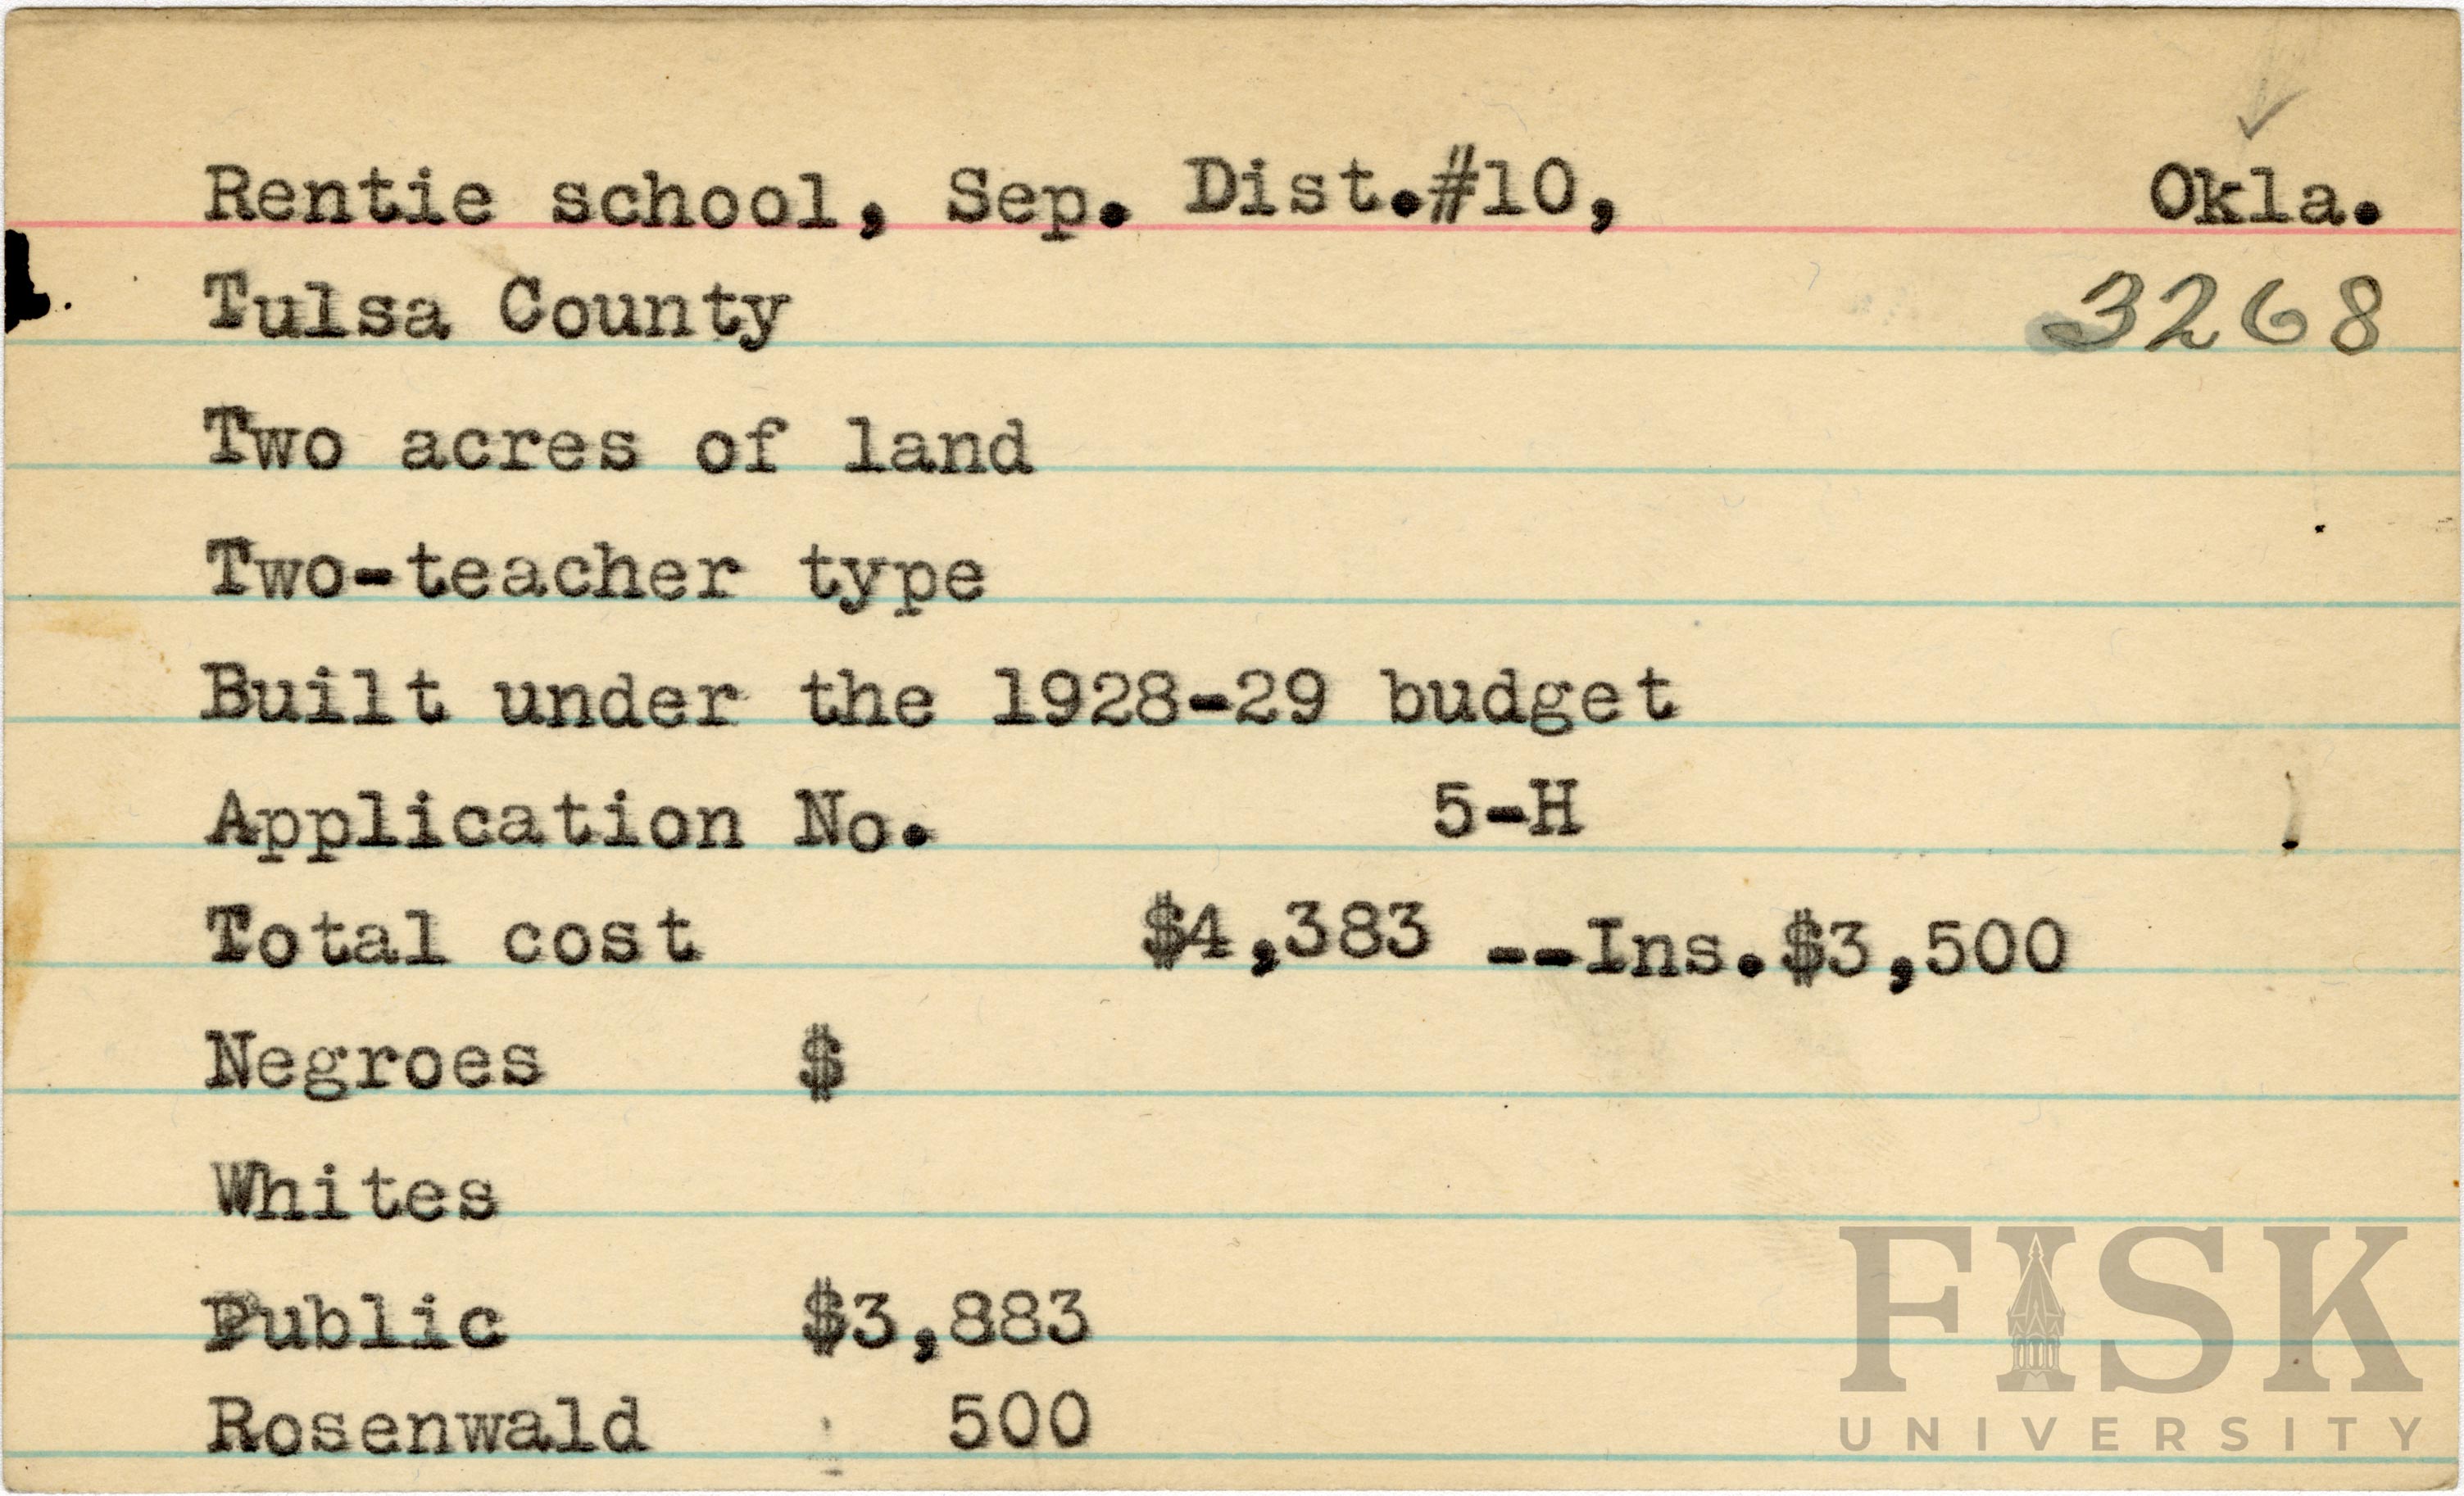 Rentie school, Sep. Dist.#10, Okla.
Tulsa County 3268
Two acres of land
Two-teacher type
Built under the 1928-29 budget
Application No. 5-H
Total cost $4,383 --Ins.$3,500
Negroes $
Whites
Public $3,883
Rosenwald 500
FISK
UNIVERSITY